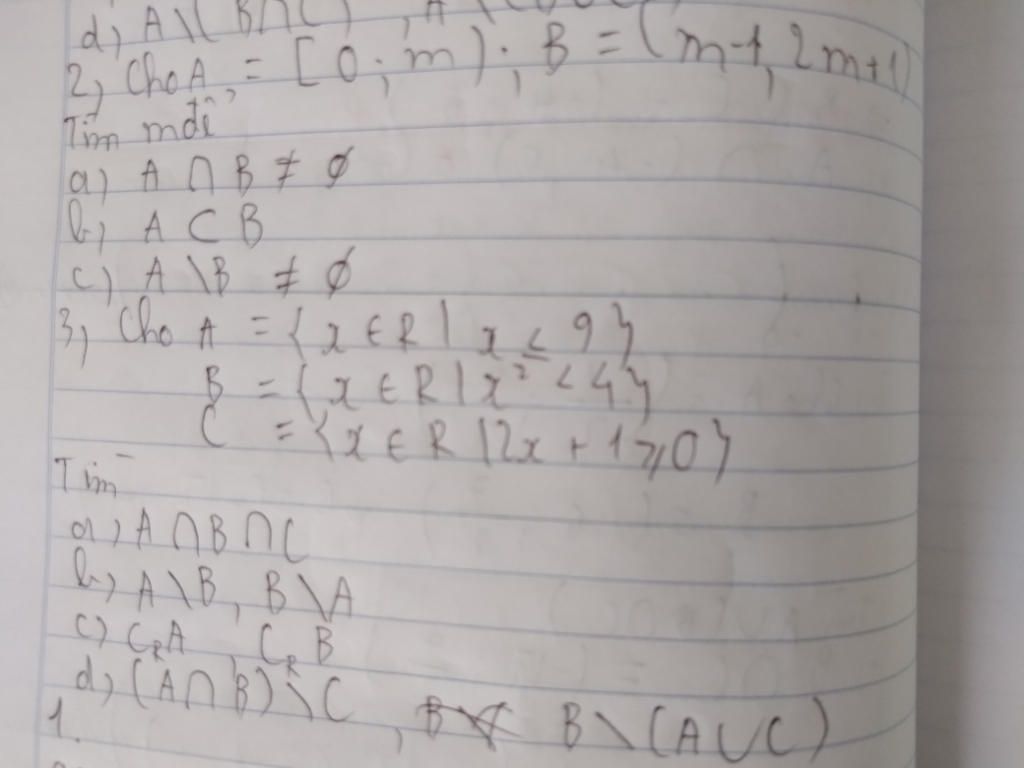 d, A \ (B ∩ C) , A \
2, Cho A = [0 ; m) ; B = (m-1, 2m+1)
Tìm m để
a) A ∩ B ≠ ∅
b, A ⊂ B
c) A \ B ≠ ∅
3, Cho A = {x ∈ R | x ≤ 9}
B = {x ∈ R | x² < 4}
C = {x ∈ R | 2x + 1 ⩾ 0}
Tìm
a) A ∩ B ∩ C
b) A \ B, B \ A
c) C_R A C_R B
d, (A ∩ B) \ C , B \ (A ∪ C)
1.